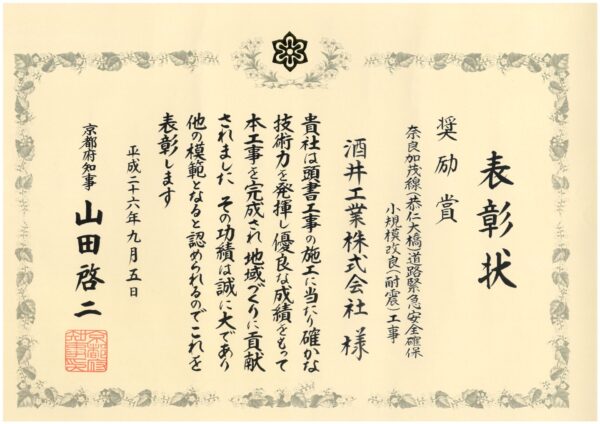 表彰状
奨励賞
奈良加茂線(恭仁大橋)道路緊急安全確保
小規模改良(耐震)工事
酒井工業株式会社 様
貴社は頭書工事の施工に当たり確かな
技術力を発揮し優良な成績をもって
本工事を完成され 地域づくりに貢献
されました その功績は誠に大であり
他の模範となると認められるのでこれを
表彰します
平成二十六年九月五日
京都府知事 山田啓二